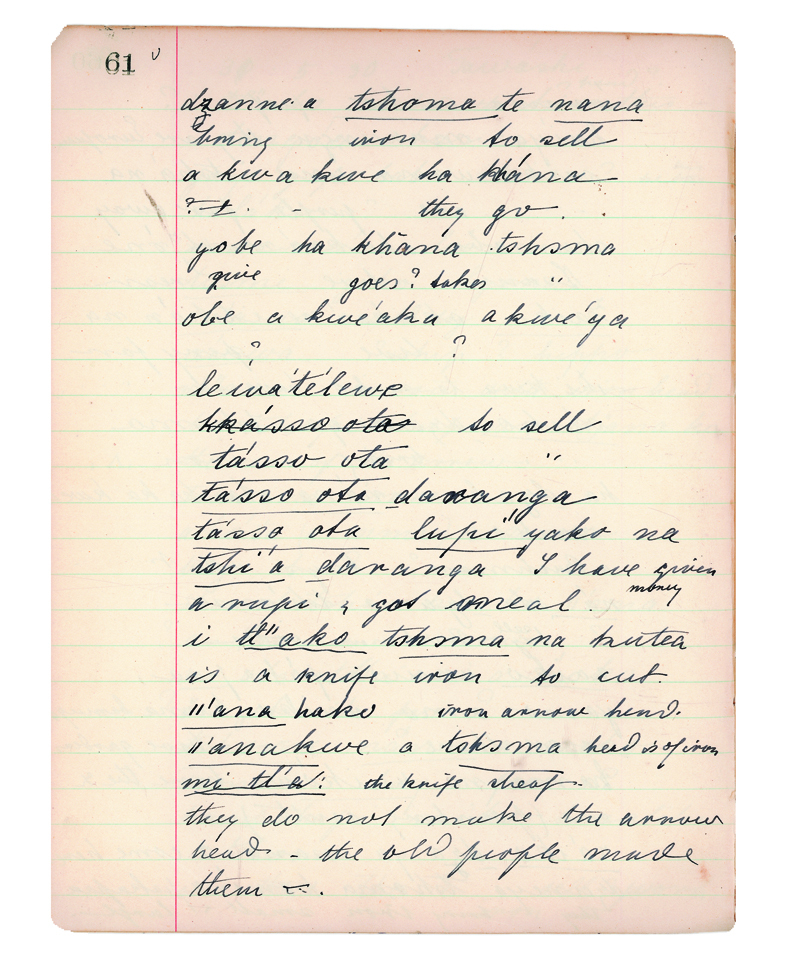 61
dzanne. a tshoma te nana
bring iron to sell
a kwa kwe ha khána
? they go .
yobe ha khāna tshsma
give goes? takes "
obe a kwé aka a kwé ya
? ?
le iva télewe
kkásso ota to sell
tásso ota "
tásso ota daxanga
tásso ota lupi" yako na
tshi'a daranga I have given
money
a rupi & got meal .
i tl"ako tshsma na kutea
is a knife iron to cut.
"'ana hako iron arrow head.
"'anakwe a tshsma head is of iron
mi tl'a: the knife sheaf.
they do not make the arrow
head - the old people made
them